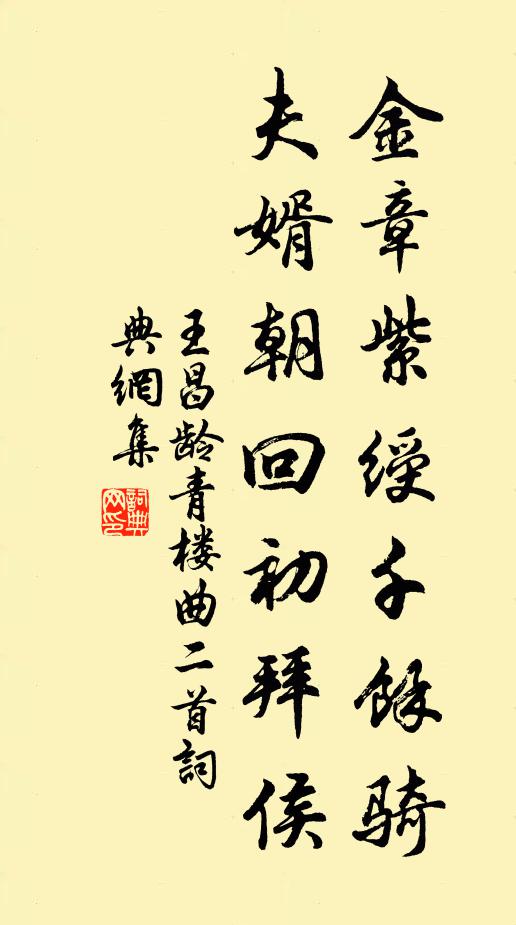 金章紫綬千餘騎
夫婿朝回初拜侯
王昌龄青楼曲二首詞
典網集
詞典
网印